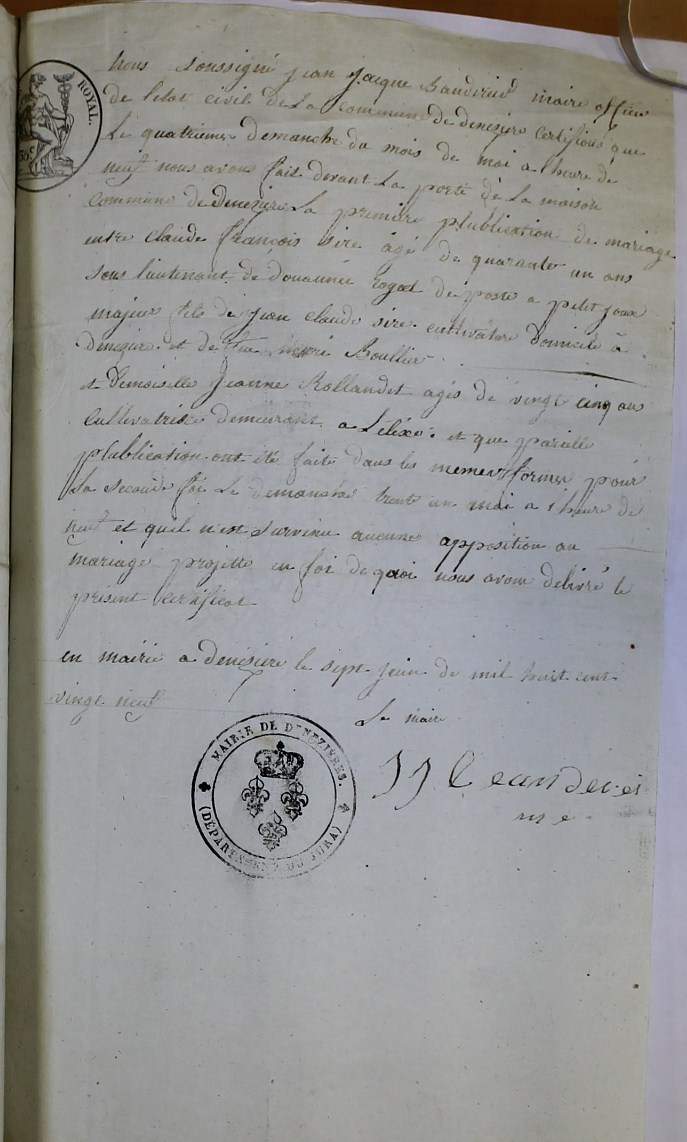 ROYAL.
35c
nous soussigné jean jacque maire officier
de l'etat civil de La commune de denezire certifions que
Le quatrieme demanche du mois de mai a lheure de
neuf nous avons fait devant La porte de La maison
commune de denezire La premiere plublication de mariage
entre claude françois sire âgé de quarante un ans
sous lieutenant de douanne royal de poste a petit joux
majeur fils de jean claude sire cultivateur domicile à
denezire et de feue marie Boullier
et Demoiselle Jeanne Rollandet agés de vingt cinq ans
cultivatrice demeurant a Lélex et que pareille
plublication ont été fait dans les memes formes pour
La seconde foi Le demanche trent un mai a lheure de
neuf et quil n'est survenu aucune apposition au
mariage projette en foi de quoi nous avons délivré le
présent certificat
en mairie a denésiere le sept juin de mil huit cent
vingt neuf
Le maire
MAIRIE DE DENEZIERES.
(DÉPARTEMENT DU JURA)
JJ